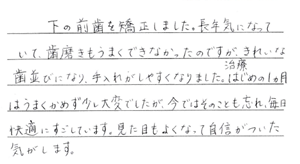 下の前歯を矯正しました。長年気になって
いて、歯磨きもうまくできなかったのですが、きれいな
歯並びになり、手入れがしやすくなりました。治療はじめの1ヶ月
はうまくかめず少し大変でしたが、今ではそのことも忘れ、毎日
快適にすごしています。見た目もよくなって自信がついた
気がします。